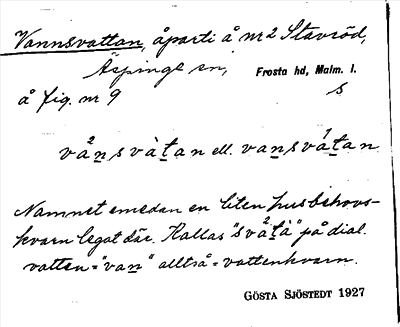 Vannsvattan, åparti å nr 2 Stavröd,
Äspinge sn, Frosta hd, Malm. l.
å fig. nr 9 s
vånsvàtan ell. vansvátan
Namnet emedan en liten husbehovs-
kvarn legat där. Kallas "svåtà" på dial.
vatten = "van" alltså = vattenkvarn.
GÖSTA SJÖSTEDT 1927